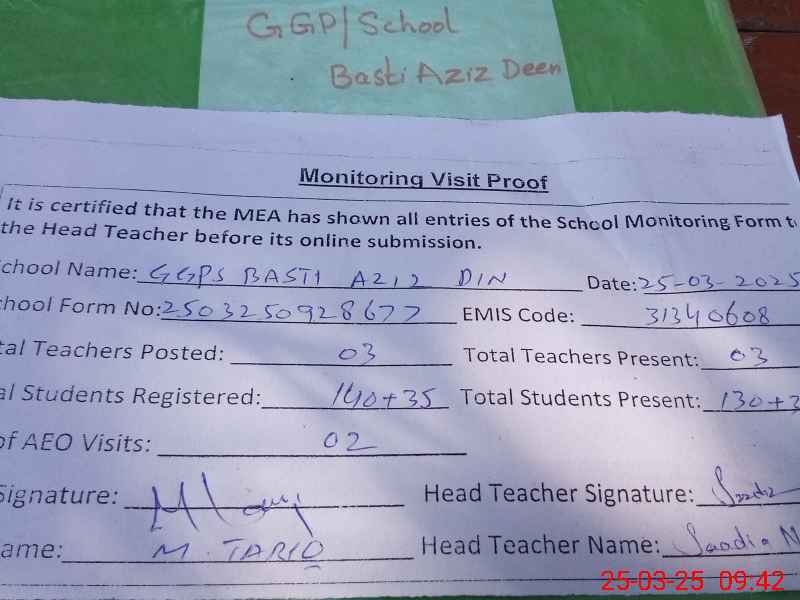 GGP/School
Basti Aziz Deen
Monitoring Visit Proof
It is certified that the MEA has shown all entries of the School Monitoring Form t
the Head Teacher before its online submission.
chool Name: GGPS BASTI AZIZ DIN Date: 25-03-2025
chool Form No: 2503250928677 EMIS Code: 31340608
tal Teachers Posted: 03 Total Teachers Present: 03
al Students Registered: 140+35 Total Students Present: 130+3
of AEO Visits: 02
Signature: Head Teacher Signature: Saadia
ame: M. TARIQ Head Teacher Name: Saadia N
25-03-25 09:42